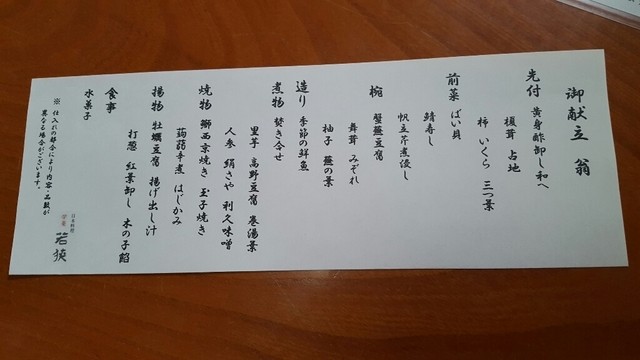 御献立 翁
先付 黄身酢卸し和へ
榎茸 占地
柿 いくら 三つ葉
前菜 ばい貝
鯖寿し
帆立芹煮浸し
椀 蟹蕪豆腐
舞茸 みぞれ
柚子 蕪の葉
造り 季節の鮮魚
煮物 焚き合せ
里芋 高野豆腐 巻湯葉
人参 絹さや 利久味噌
焼物 鰤西京焼き 玉子焼き
蒟蒻辛煮 はじかみ
揚物 牡蠣豆腐 揚げ出し汁
打葱 紅葉卸し 木の子餡
食事
水菓子
※ 仕入れの都合により内容・品数が
異なる場合がございます。
日本料理
若狭